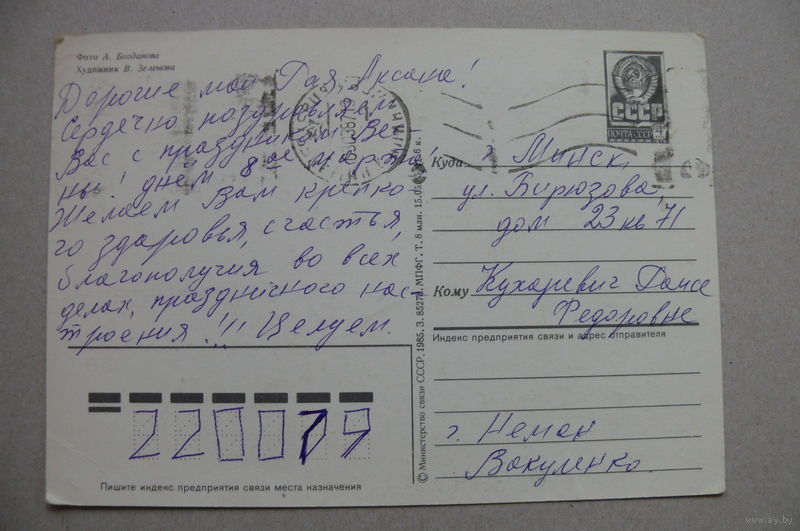 Фото А. Богданова
Художник В. Зеленова
Дорогие мои Рая, Аксана!
Сердечно поздравляем
Вас с праздником Вес-
ны! днем 8ое марта!
Желаем Вам крепко-
го здоровья, счастья,
благополучия во всех
делах, праздничного нас-
троения!!! Целуем.
СССР
ПОЧТА СССР
Куда г. Минск
ул. Бирюзова,
дом 23 кв 71
Кому Кухаревич Раисе
Федоровне
Индекс предприятия связи и адрес отправителя
г. Неман
Вакуленко.
220079
Пишите индекс предприятия связи места назначения
© Министерство связи СССР, 1985. З. 85270. МПФГ. Т. 8 млн. 15.05.85
www.ay.by